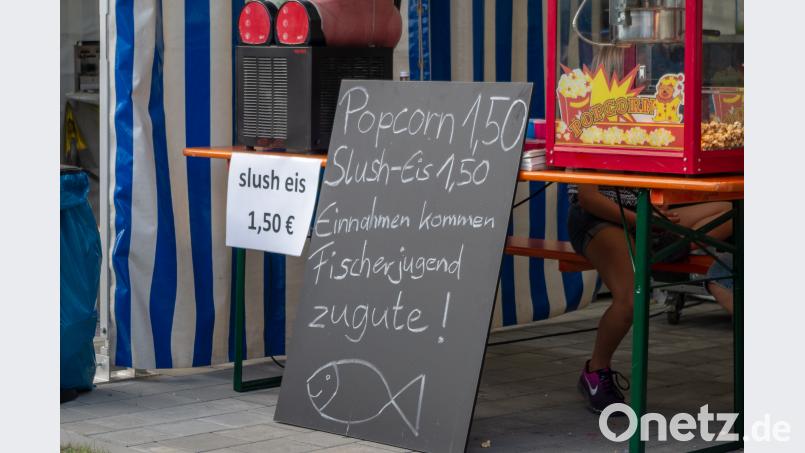 POPCORN
Popcorn 1,50
Slush-Eis 1,50
Einnahmen kommen
Fischerjugend
zugute!
slush eis
1,50 €
Onetz.de